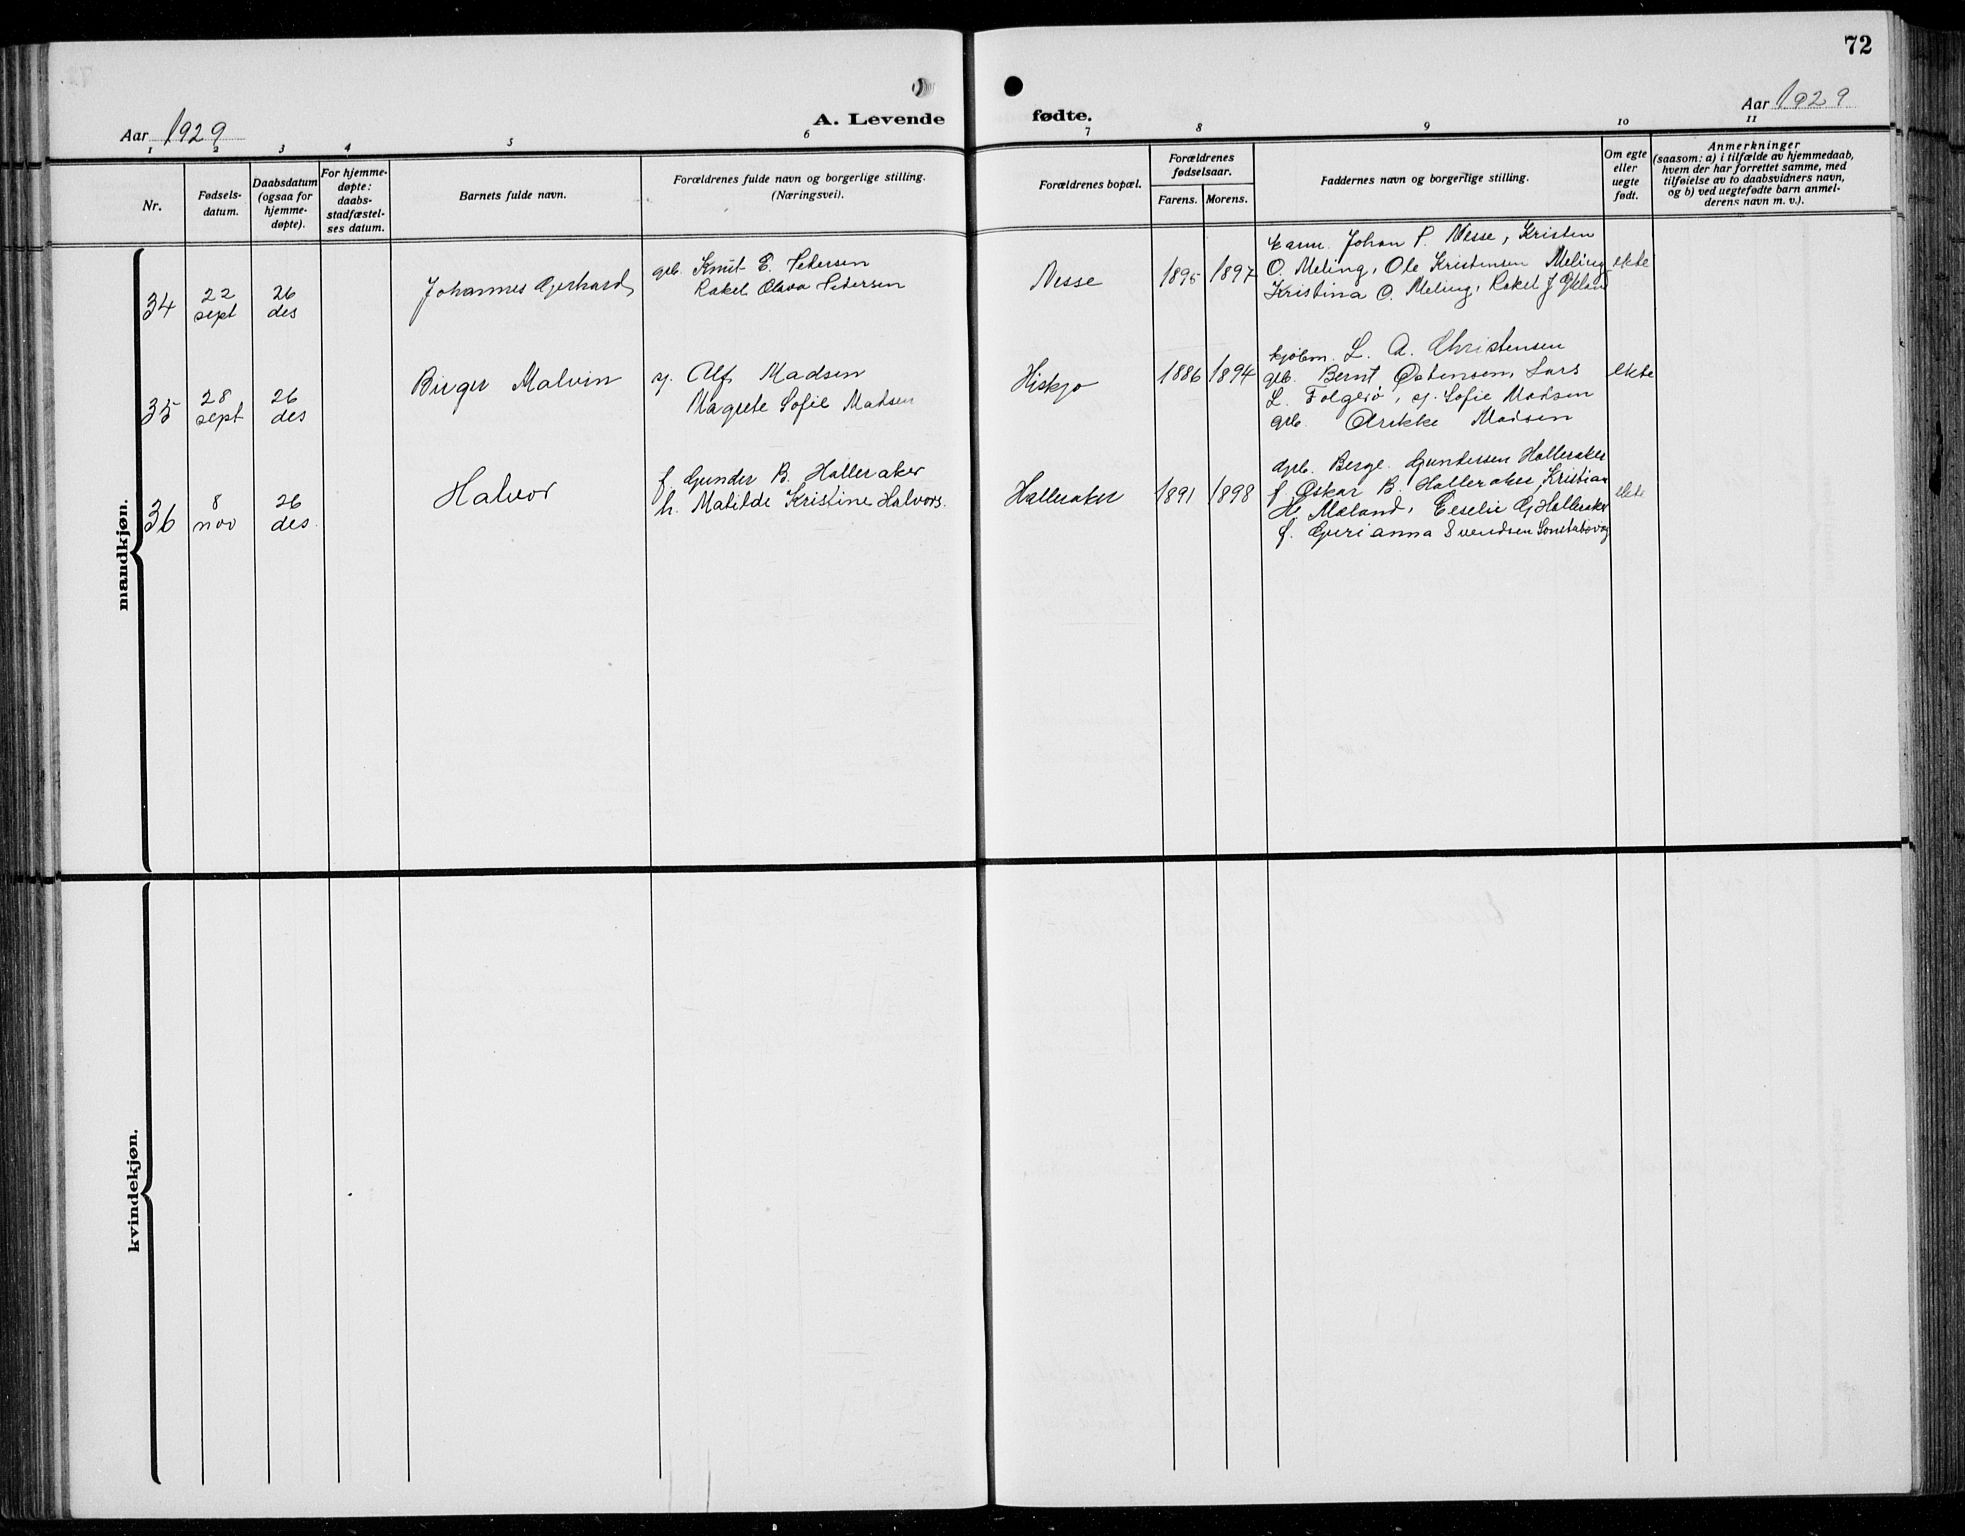 72
Aar 1929
A. Levende
fødte.
Aar 1929
1 2 3 4 5 6 7 8 9 10 11
Nr.
Fødsels-
datum.
Daabsdatum
(ogsaa for
hjemme-
døpte).
For hjemme-
døpte:
daabs-
stadfæstel-
ses datum.
Barnets fulde navn.
Forældrenes fulde navn og borgerlige stilling.
(Næringsvei).
Forældrenes bopæl.
Forældrenes
fødselsaar.
Farens. Morens.
Faddernes navn og borgerlige stilling.
Om egte
eller
uegte
født.
Anmerkninger
(saasom: a) i tilfælde av hjemmedaab,
hvem der har forrettet samme, med
tilføielse av to daabsvidners navn,
og b) ved uegtefødte barn anmel-
derens navn m. v.).
mandkjøn.
34
22
sept
26
des
Johannes Gerhard
grb. Knut E. Petersen
Rakel Olava Petersen
Nesse
1895 1897
Johan P. Nesse, Kristen
O. Meling, Ole Kristensen Meling
Kristina O. Meling, Rakel J.
ekte
35
28
sept
26
des
Birger Malvin
Alf Madsen
Magrete Sofie Madsen
Hiskjo
1886 1894
kjøbm. L. A. Christensen
grb. Bernt Østensen, Lars
L. Folgerø, Sofie Madsen
grb. Madsen
ekte
36
8
nov
26
des.
Halvor
f. Gunder B. Halleraker
h. Matilde Kristine Halvors.
Halleraker
1891 1898
grb. Berge Gundersen Halleraker
f. Oskar B. Halleraker, Kristian
Mæland, G Halleraker
f. anna Svendsen
ekte
kvindekjøn.